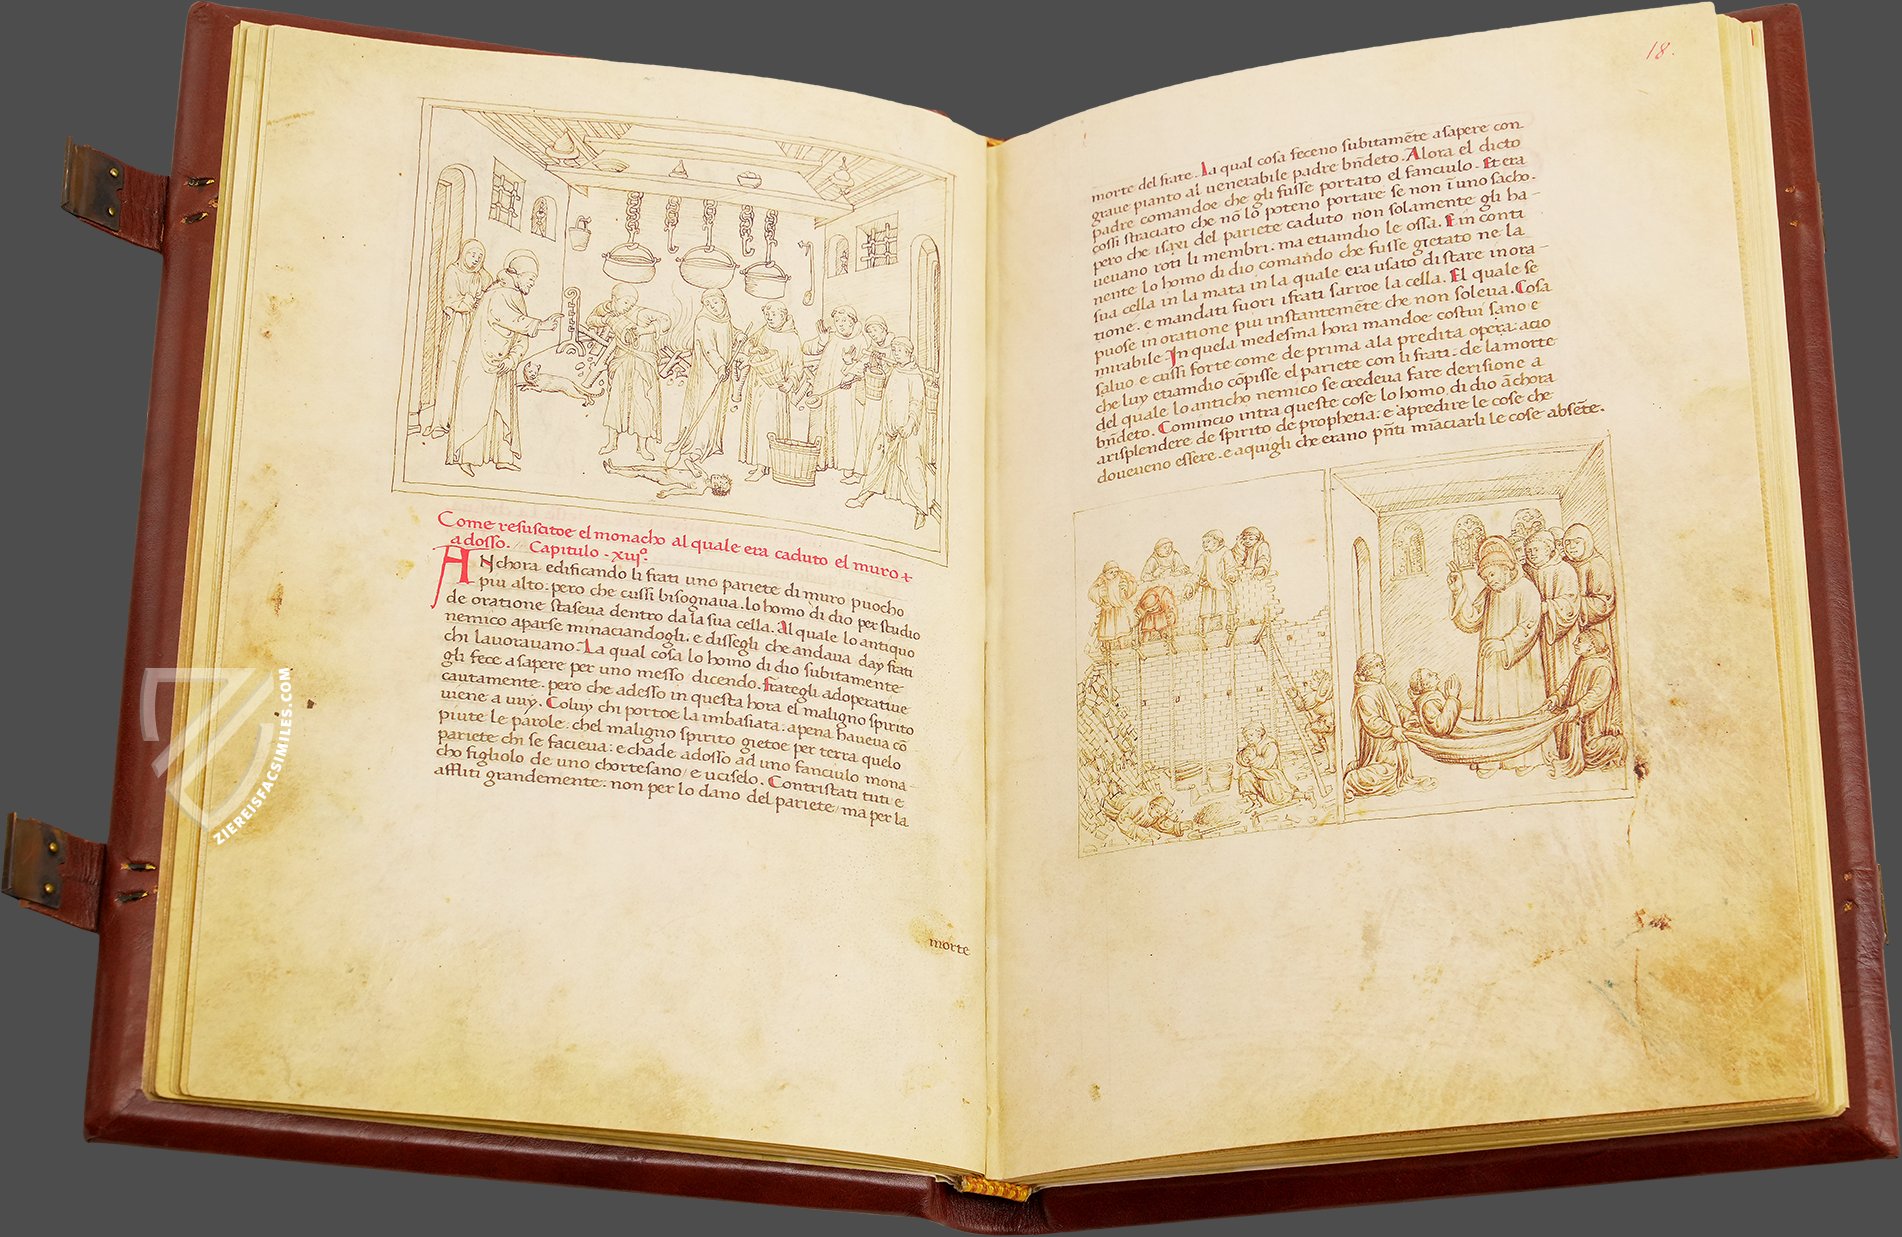 Come resuscitoe el monacho al quale era caduto el muro
adosso. Capitulo · xiiij°.
ANchora edificando li frati uno pariete di muro puocho
piu alto: pero che cussi bisognaua. lo homo di dio per studio
de oratione staseua dentro da la sua cella. Al quale lo antiquo
nemico aparse minaciandogli. e dissegli che andaua day frati
chi lauorauano. La qual cosa lo homo di dio subitamente
gli fece asapere per uno messo dicendo. frategli adoperatiue
cautamente. pero che adesso in questa hora el maligno spirito
uiene a uuy. Coluy chi portoe la imbasiata. apena haueua cõ
piute le parole. chel maligno spirito gietoe per terra quelo
pariete chi se facieua: e chade adosso ad uno fanciulo mona
cho figliolo de uno chortesano / e uciselo. Contristati tuti e
affliti grandemente. non per lo dano del pariete / ma per la
morte
18.
morte del frate. La qual cosa feceno subitamẽte asapere con
graue pianto al uenerabile padre bñdeto. Alora el dicto
padre comandoe che gli fusse portato el fanciulo. Et era
cossi straciato che nõ lo poteno portare se non ĩ uno sacho.
pero che isaxi del pariete caduto non solamente gli ha-
ueuano roti li membri. ma etiamdio le ossa. E in conti
nente lo homo di dio comando che fusse gietato ne la
sua cella in la mata in la quale era usato di stare inora-
tione. e mandati fuori ifrati sarroe la cella. El quale se
puose in oratione piu instantemẽte che non soleua. Cosa
mirabile In quela medesma hora mandoe costui sano e
saluo e cussi forte come de prima ala predita opera: acio
che luy etiamdio cõpisse el pariete con li frati. de la morte
del quale lo anticho nemico se credeua fare derisione a
bñdeto. Comincio intra queste cose lo homo di dio ãchora
arisplendere de spirito de prophetia: e apredire le cose che
doueueno essere. e aquigli che erano pñti mĩaciarli le cose absẽte.
ZIEREISFACSIMILES.COM